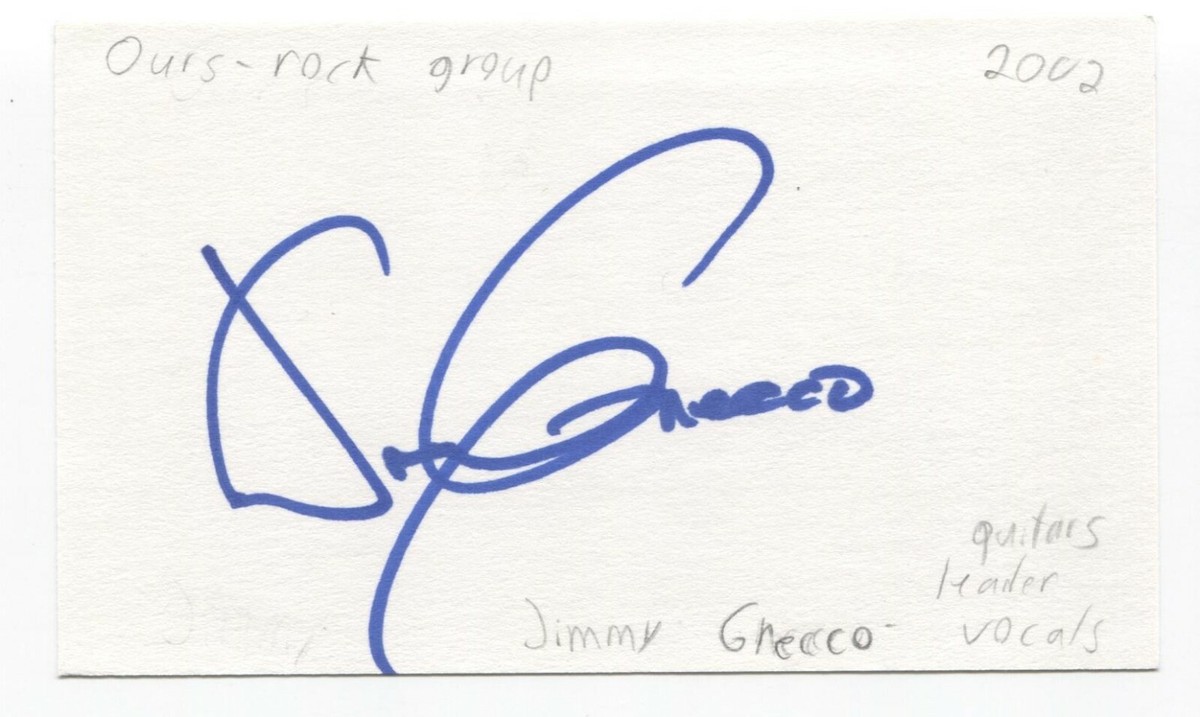 Ours - rock group 2002
Gnecco
guitars
leader
Jimmy Gnecco - vocals